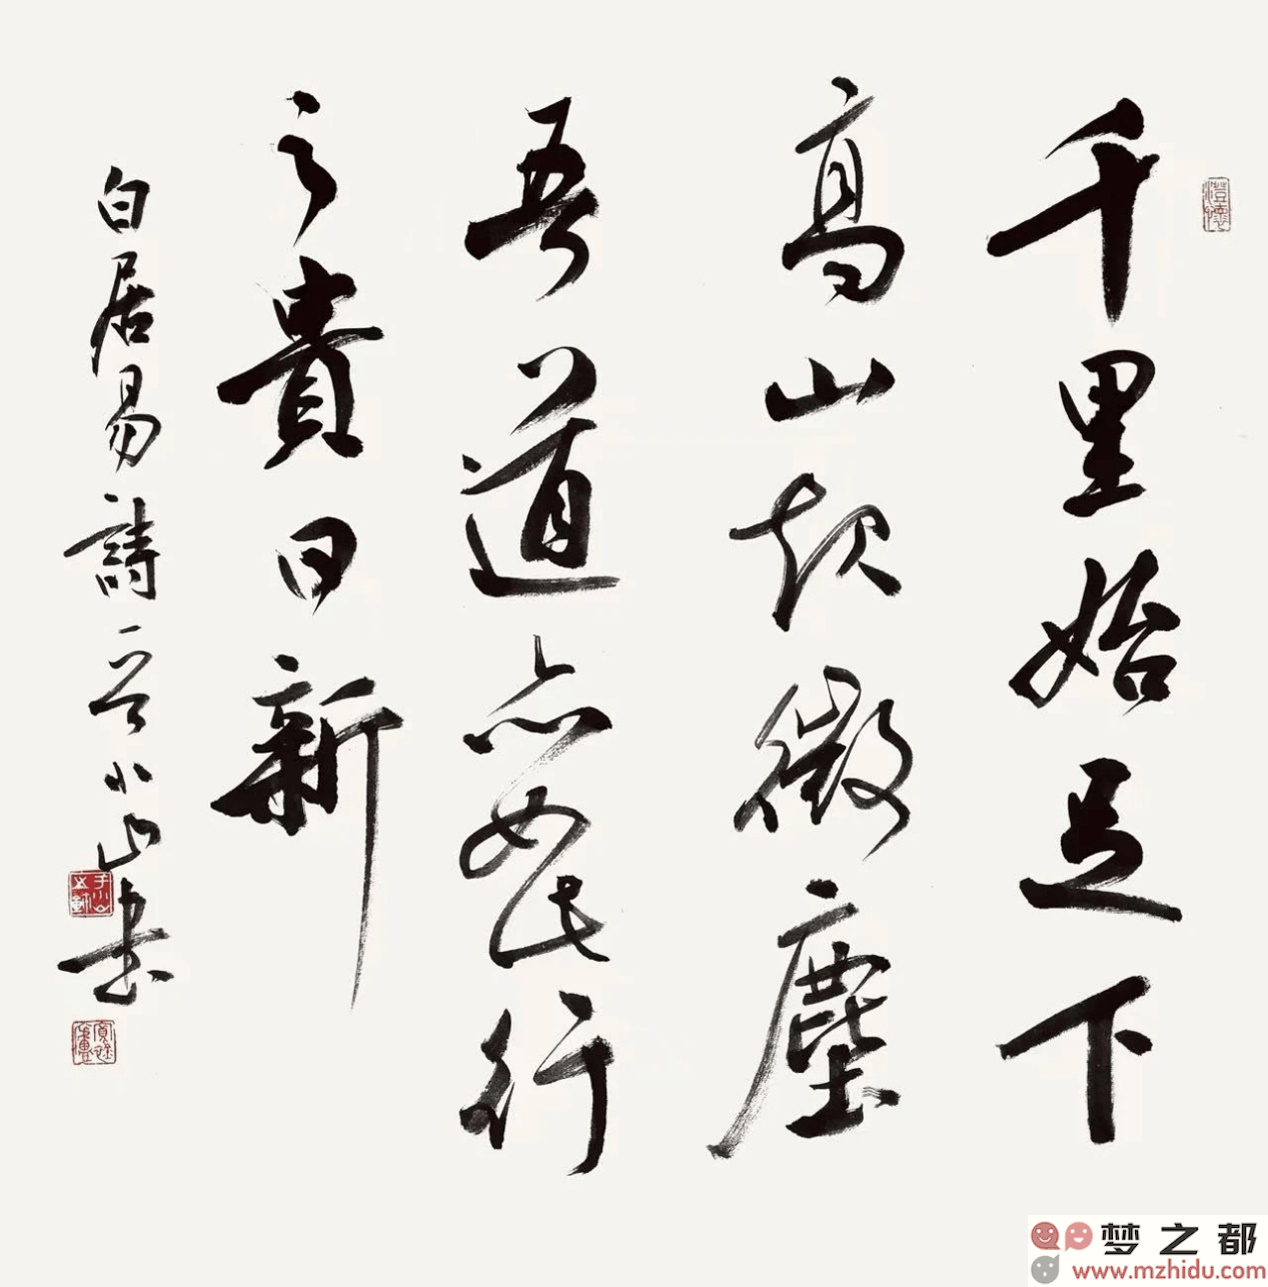 澄懷
千里始足下
高山起微塵
吾道亦如此行
之貴日新
白居易詩一首小山書
梦之都
www.mzhidu.com